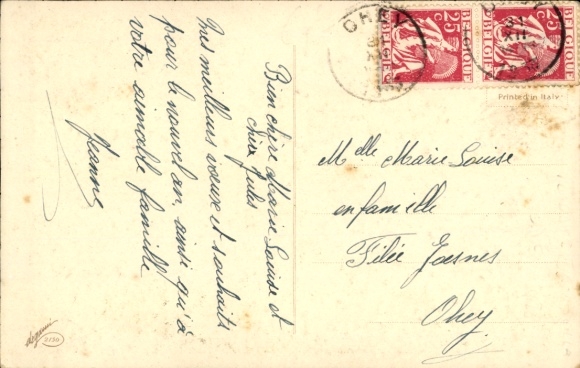 Bien chère Marie Louise et
cher Jules
Mes meilleurs vœux et souhaits
pour le nouvel an, ainsi qu'à
votre aimable famille
Jeanne
OHEY
BELGIQUE
25c
BELGIE
BELGIQUE
25c
BELGIE
Printed in Italy
Melle Marie Louise
en famille
Filée Jesnes
Ohey
2134